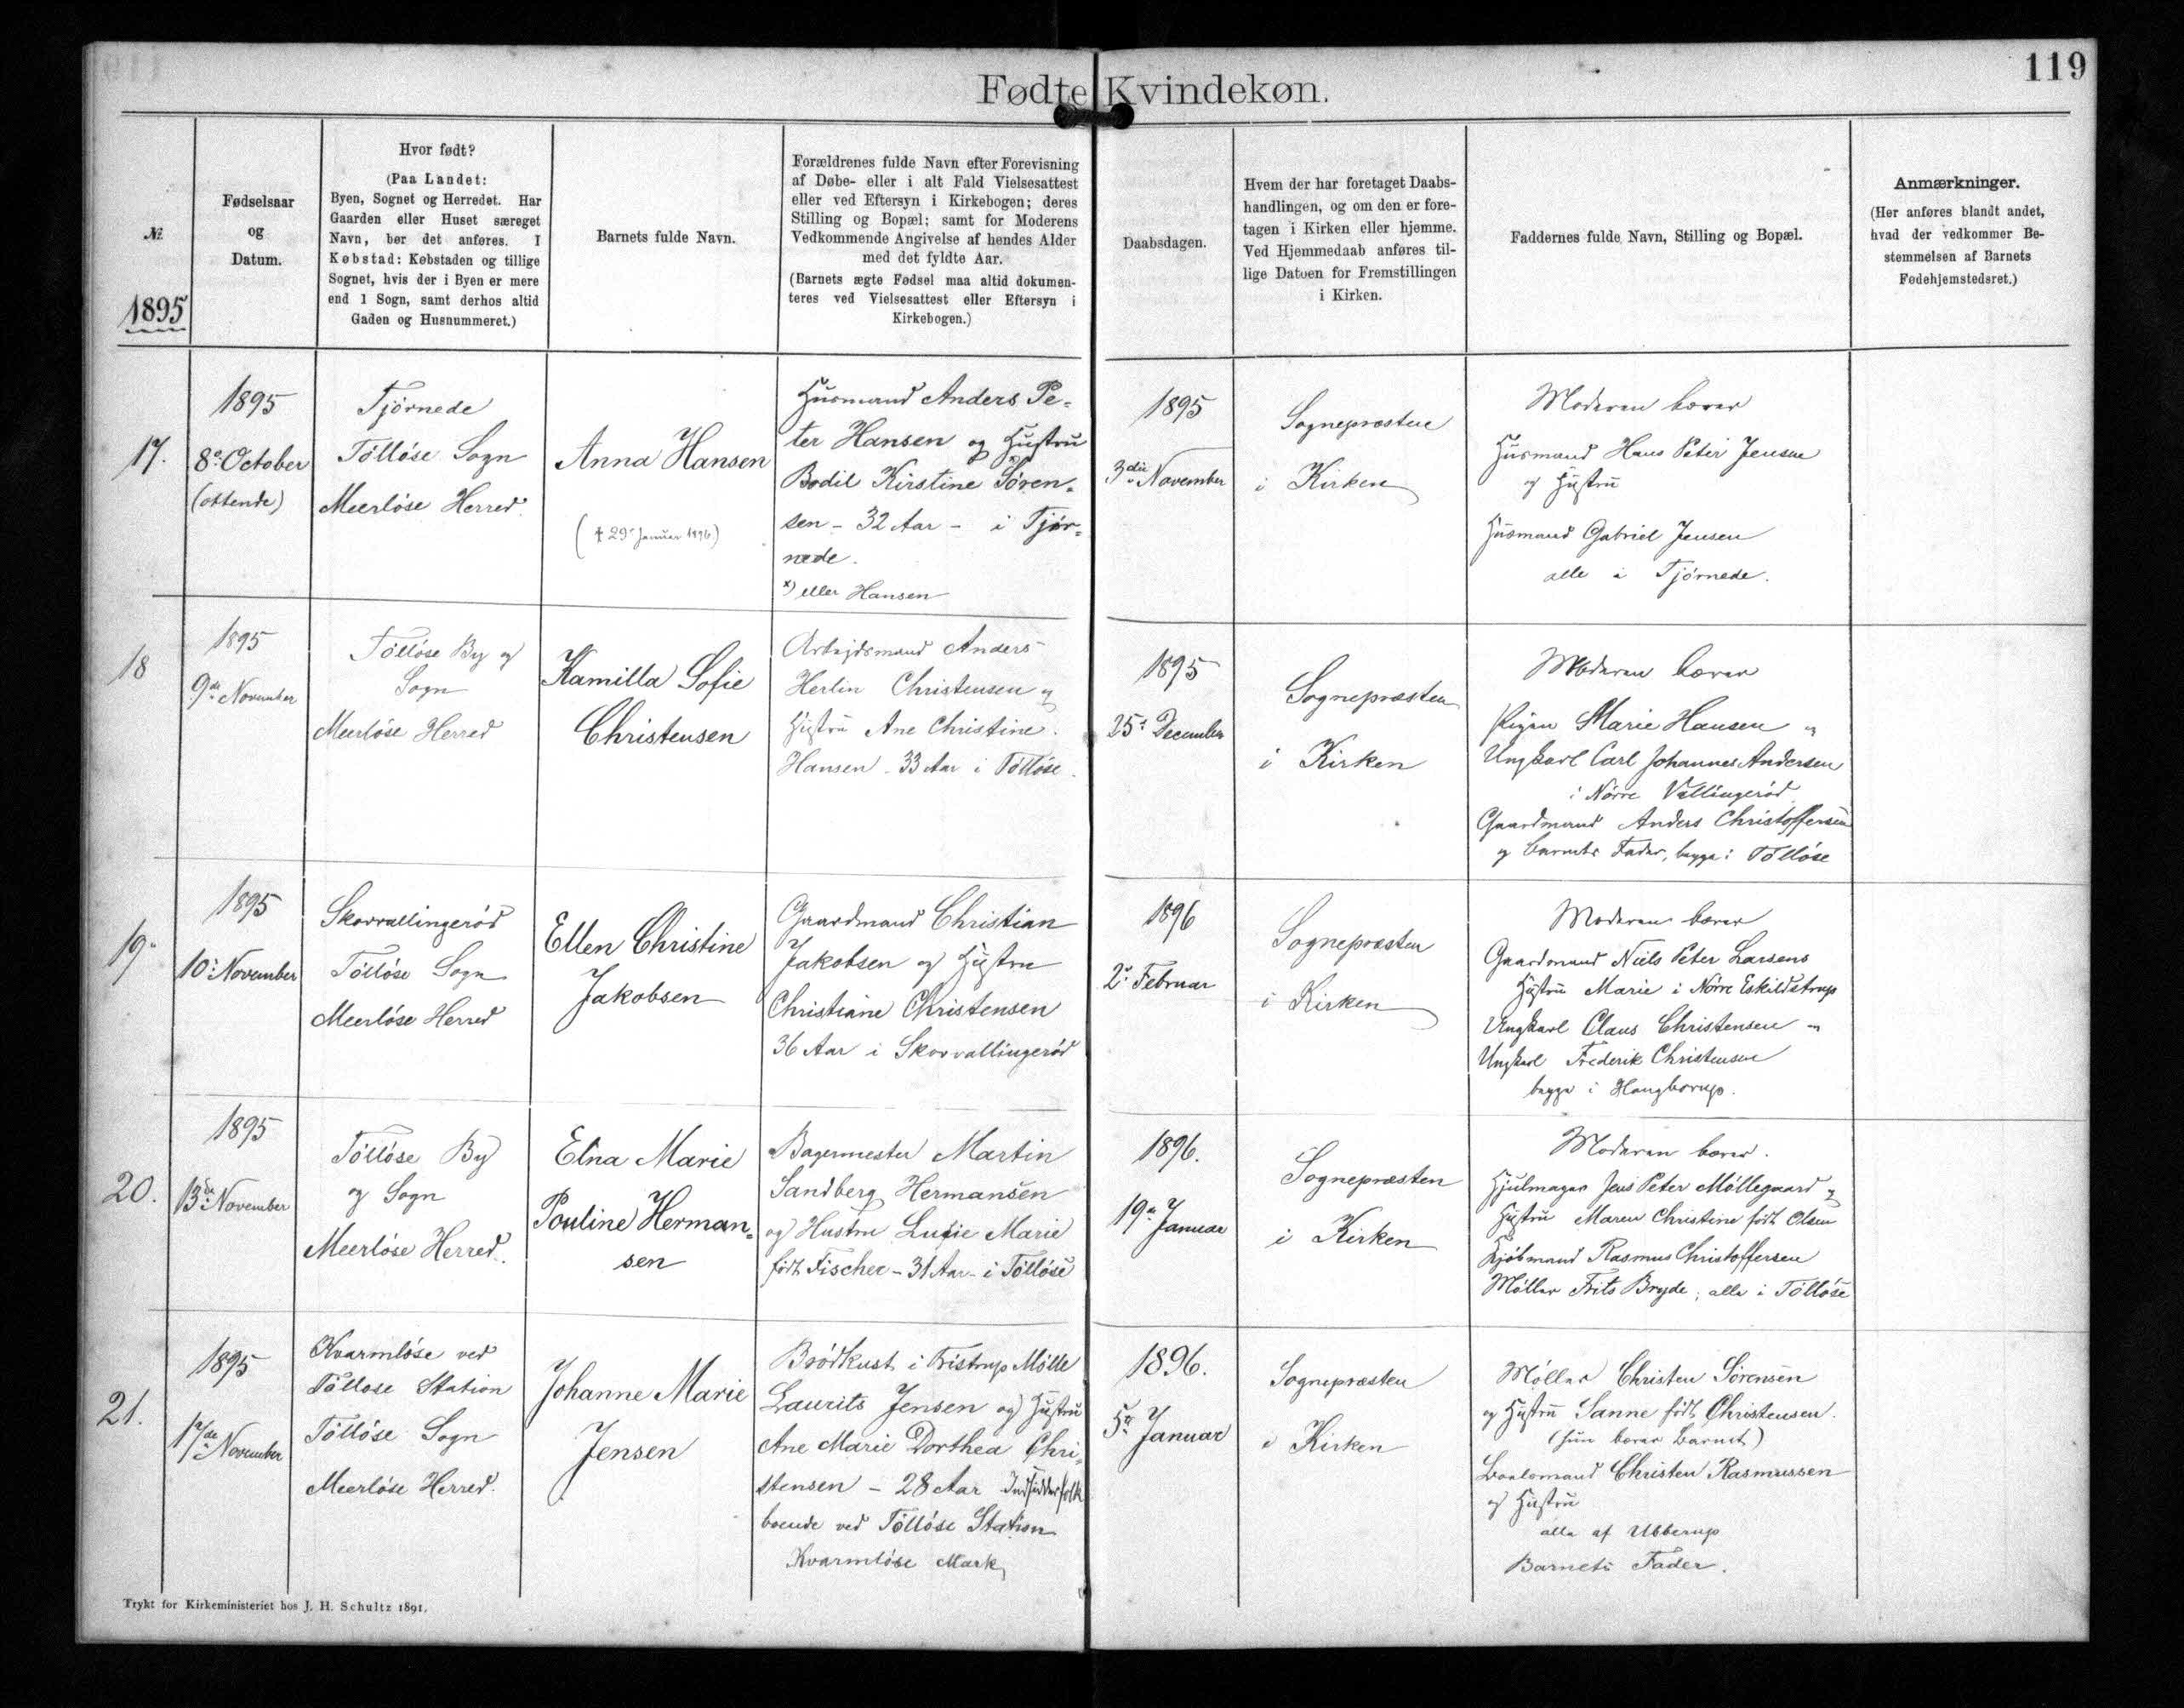 119
Fødte Kvindekøn.
№
1895
Fødselsaar
og
Datum.
Hvor født?
(Paa Landet:
Byen, Sognet og Herredet. Har
Gaarden eller Huset særeget
Navn, bør det anføres. I
Købstad: Købstaden og tillige
Sognet, hvis der i Byen er mere
end 1 Sogn, samt derhos altid
Gaden og Husnummeret.)
Barnets fulde Navn.
Forældrenes fulde Navn efter Forevisning
af Døbe- eller i alt Fald Vielsesattest
eller ved Eftersyn i Kirkebogen; deres
Stilling og Bopæl; samt for Moderens
Vedkommende Angivelse af hendes Alder
med det fyldte Aar.
(Barnets ægte Fødsel maa altid dokumen-
teres ved Vielsesattest eller Eftersyn i
Kirkebogen.)
Daabsdagen.
Hvem der har foretaget Daabs-
handlingen, og om den er fore-
tagen i Kirken eller hjemme.
Ved Hjemmedaab anføres til-
lige Datoen for Fremstillingen
i Kirken.
Faddernes fulde Navn, Stilling og Bopæl.
Anmærkninger.
(Her anføres blandt andet,
hvad der vedkommer Be-
stemmelsen af Barnets
Fødehjemstedsret.)
17.
1895
8de October
(ottende)
Tjørnede
Tölløse Sogn
Meerløse Herred.
Anna Hansen
(† 29de Januar 1896)
Husmand Anders Pe-
ter Hansen og Hustru
Bodil Kirstine Søren- x)
sen - 32 Aar - i Tjør-
nede.
x) eller Hansen
1895
3die November
Sognepræsten
i Kirken
Moderen bærer
Husmand Hans Peter Jensen
og Hustru
Husmand Gabriel Jensen
alle i Tjørnede.
18
1895
9de November
Tölløse By og
Sogn
Meerløse Herred
Kamilla Sofie
Christensen
Arbejdsmand Anders
Herlin Christensen og
Hustru Ane Christine
Hansen - 33 Aar i Tölløse.
1895
25de December
Sognepræsten
i Kirken
Moderen bærer
Pigen Marie Hansen og
Ungkarl Carl Johannes Andersen
i Nørre Vallingerød
Gaardmand Anders Christoffersen
og Barnets Fader, begge i Tölløse
19.
1895
10de November
Skovvallingerød
Tölløse Sogn
Meerløse Herred
Ellen Christine
Jakobsen
Gaardmand Christian
Jakobsen og Hustru
Christiane Christensen
36 Aar i Skovvallingerød
1896
2den Februar
Sognepræsten
i Kirken
Moderen bærer
Gaardmand Niels Peter Larsens
Hustru Marie i Nørre Eskildstrup
Ungkarl Claus Christensen og
Ungkarl Frederik Christensen
begge i Hongborup.
20.
1895
13de November
Tölløse By
og Sogn
Meerløse Herred.
Elna Marie
Pouline Herman-
sen
Bagermester Martin
Sandberg Hermansen
og Hustru Lucie Marie
født Fischer - 31 Aar - i Tölløse
1896.
19de Januar
Sognepræsten
i Kirken
Moderen bærer.
Hjulmager Jens Peter Møllegaard og
Hustru Maren Christine født Olsen
Kjøbmand Rasmus Christoffersen
Møller Frits Bryde, alle i Tölløse
21.
1895
17de November
Kvarmløse ved
Tølløse Station
Tölløse Sogn
Meerløse Herred.
Johanne Marie
Jensen
Brødkusk i Tristrup Mølle
Laurits Jensen og Hustru
Ane Marie Dorthea Chri-
stensen - 28 Aar Indsidderfolk
boende ved Tölløse Station
Kvarmløse Mark
1896.
5te Januar
Sognepræsten
i Kirken
Møller Christen Sørensen
og Hustru Sanne født Christensen.
(hun bærer Barnet)
Boelsmand Christen Rasmussen
og Hustru
alle af Ubberup
Barnets Fader.
Trykt for Kirkeministeriet hos J. H. Schultz 1891.